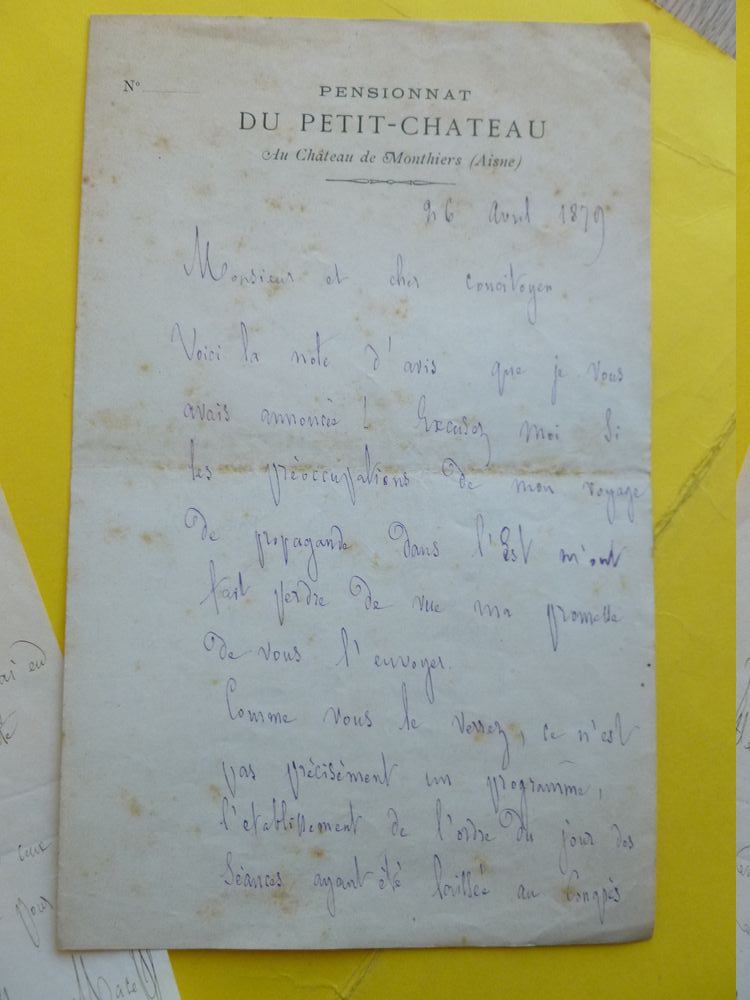 N°
PENSIONNAT
DU PETIT-CHATEAU
Au Château de Monthiers (Aisne)
26 Avril 1879
Monsieur et cher concitoyen
Voici la note d'avis que je vous
avais annoncée ! Excusez moi si
les préoccupations de mon voyage
de propagande dans l'Est m'ont
fait perdre de vue ma promesse
de vous l'envoyer.
Comme vous le verrez, ce n'est
pas précisément un programme,
l'etablissement de l'ordre du jour des
séances ayant été laissée au Congrès